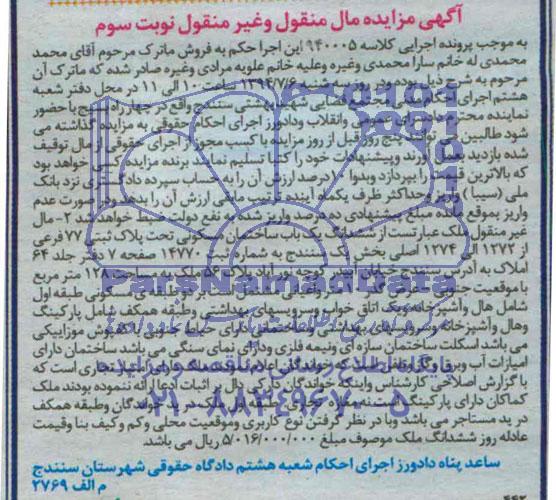 آگهی مزایده مال منقول وغیر منقول نوبت سوم
به موجب پرونده اجرایی کلاسه ۹۴۰۰۰۵ این اجرا حکم به فروش ماترک مرحوم آقای محمد
محمدی له خانم سارا محمدی وغیره وعلیه خانم علویه مرادی وغیره صادر شده که ماترک آن
مرحوم به شرح ذیل بوده ودر روز سه شنبه ۱۳۹۴/۷/۶ ساعت ۱۰ الی ۱۱ در محل دفتر شعبه
هشتم اجرای احکام مدنی مجتمع قضایی شهید بهشتی سنندج واقع در چهار راه بسیج باحضور
نماینده محترم دادسرای عمومی وانقلاب ودادورز اجرای احکام حقوقی به مزایده گذاشته می
شود طالبین می توانند پنج روز قبل از روز مزایده با کسب مجوز از اجرای حقوقی از مال توقیف
شده بازدید بعمل آورند وپیشنهادات خود را کتبا تسلیم نمایند برنده مزایده کسی خواهد بود
که بالاترین قیمت را بپردازد وبدوا ۱۰ درصد ارزش آن را به حساب سپرده دادگستری نزد بانک
ملی (سیبا) واریز وحداکثر ظرف یکماه آینده ترتیب مابقی ارزش آن را بدهد ودر صورت عدم
واریز بموقع مانده مبلغ پیشنهادی ده درصد واریز شده به نفع دولت ضبط خواهد شد ۲- مال
غیر منقول ملک عبارتست از ششدانگ یک باب ساختمان مسکونی تحت پلاک ثبتی ۷۷ فرعی
از ۱۲۷۳ الی ۱۲۷۴ اصلی بخش سنندج به شماره ثبت ۱۴۷۷۰ صفحه ۷ دفتر جلد ۶۴
املاک به آدرس سنندج خیابان آبیدر کوچه نورآباد پلاک ۵۶ ملک به مساحت ۱۲۸ متر مربع
با موقعیت مشتمل است بر دو طبقه ی مسکونی طبقه اول
شامل هال وآشپزخانه ویک اتاق خواب وسرویسهای بهداشتی وطبقه همکف شامل پارکینگ
وهال وآشپزخانه وسرویسهای بهداشتی ساختمان دارای حیاط جنوبی با کفپوش موزاییکی
می باشد اسکلت ساختمان سازه ای ونیمه فلزی ودارای نمای سنگی می باشد ساختمان دارای
امتیازات آب وبرق وگاز وتلفن است که خواندگان تجاری است که
با گزارش اصلاحی کارشناس واینکه خواندگان مدرکی دال بر اثبات ادعا ارائه ننموده بودند ملک
کماکان دارای پارکینگ ملک در ید خواندگان وطبقه همکف
در ید مستاجر می باشد وبا در نظر گرفتن نوع کاربری وموقعیت محلی وکم وکیف بنا وقیمت
عادله روز ششدانگ ملک موصوف مبلغ ۵/۰۱۶/۰۰۰/۰۰۰ ریال می باشد
ساعد پناه دادورز اجرای احکام شعبه هشتم دادگاه حقوقی شهرستان سنندج
م الف ۲۷۶۹
۴۴۲
ParsNamadData
پایگاه اطلاع رسانی مناقصه و مزایده
۰۲۱-۸۸۳۴۹۶۷۰-۵